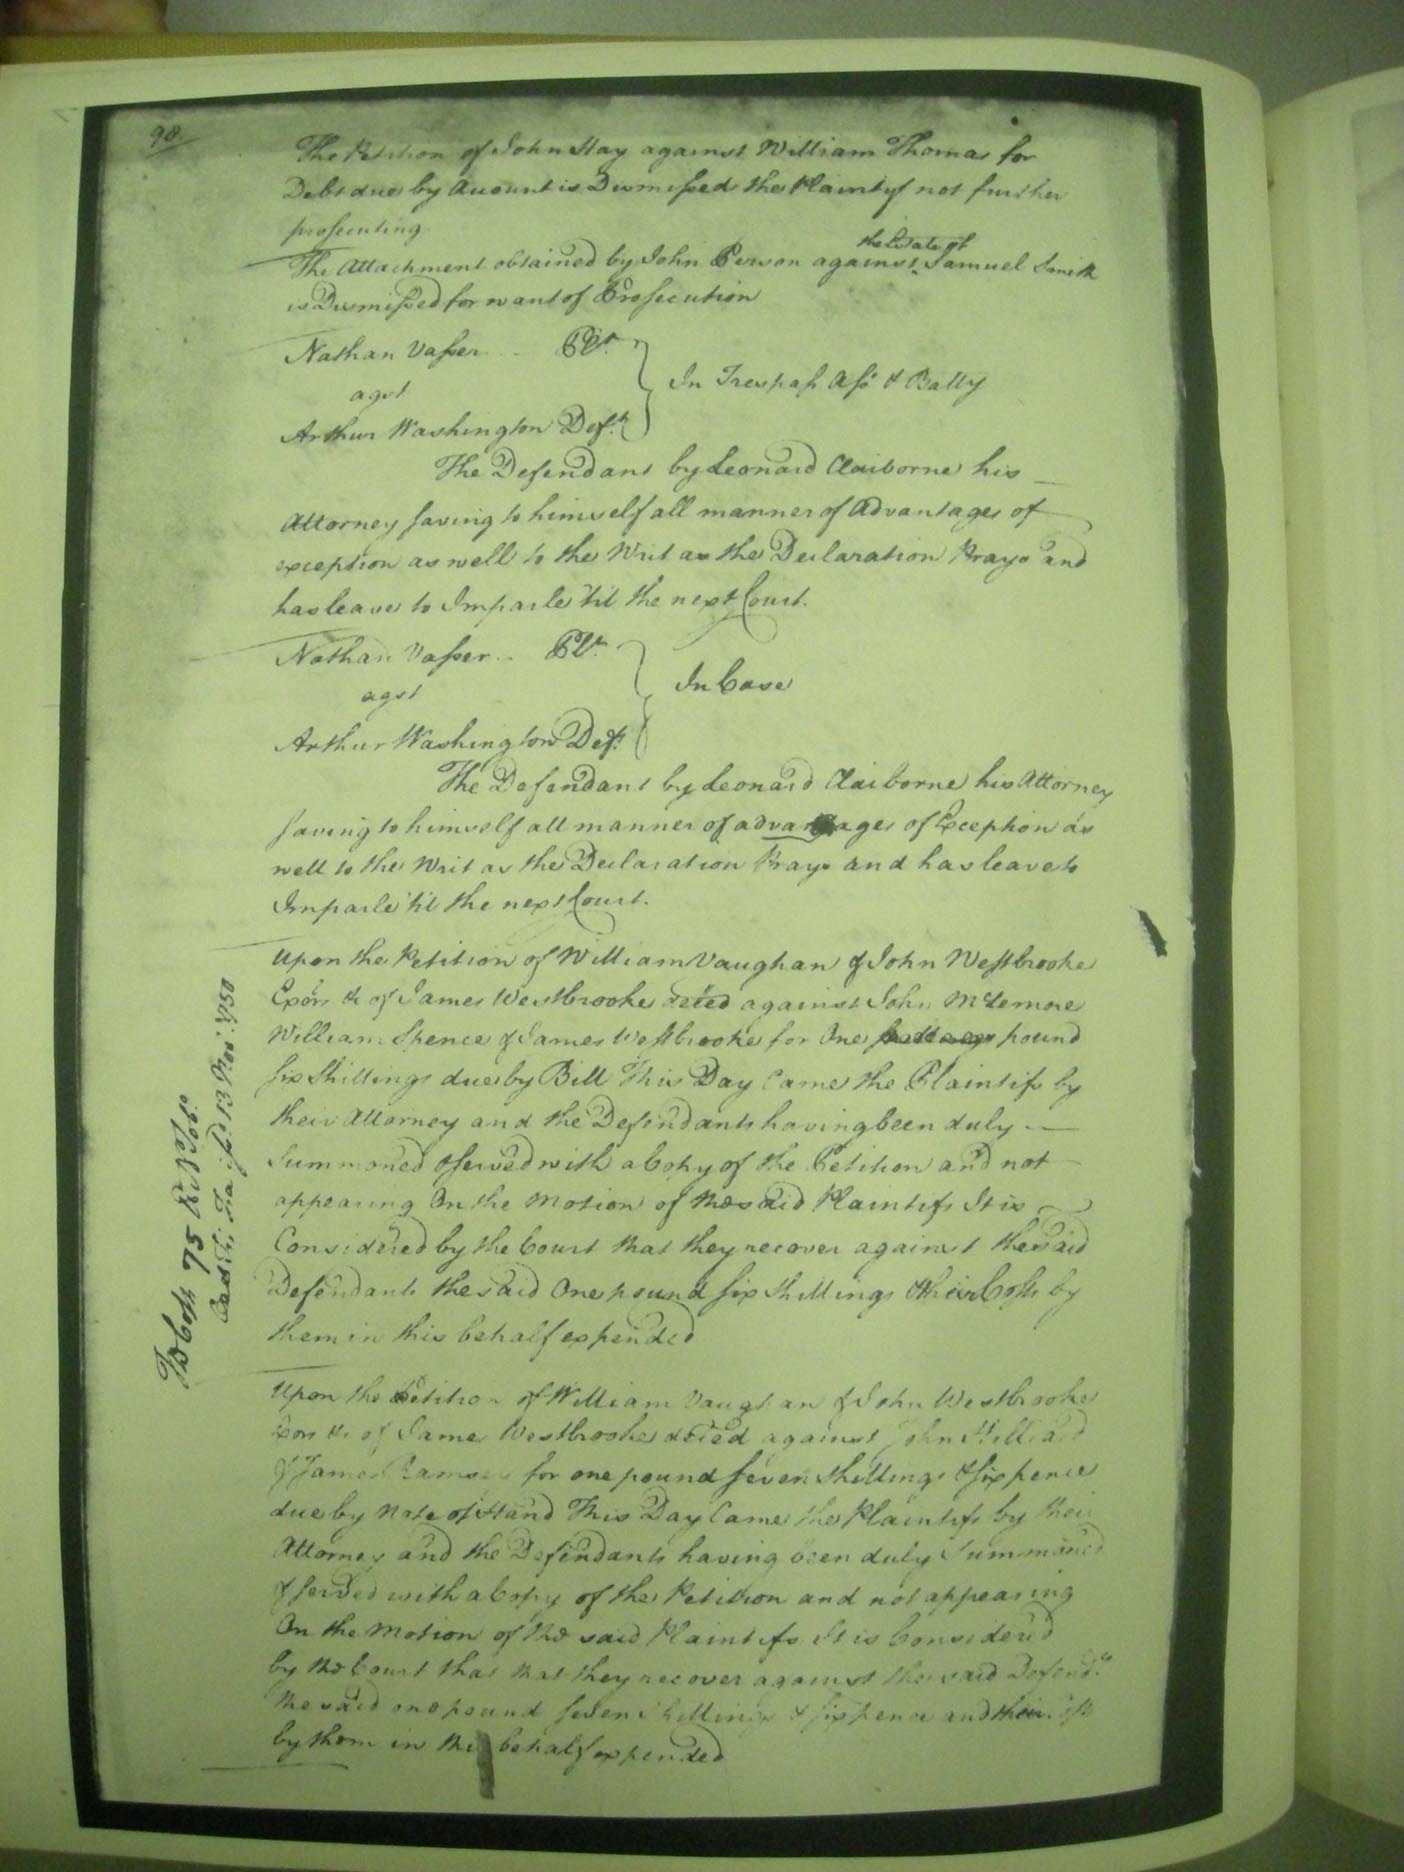 98
The Petition of John Hay against William Thomas for
Debt due by Account is Dismissed the Plaintif not further
prosecuting
the Estate of
The Attachment obtained by John Person against Samuel Smith
is Dismissed for want of Prosecution
Nathan Vasser Plt.
agst
In Trespass Asst. & Batty
Arthur Washington Deft.
The Defendant by Leonard Claiborne his
Attorney saving to himself all manner of Advantages of
exception as well to the Writ as the Declaration Prays and
has leave to Imparle til the next Court.
Nathan Vasser Plt.
agst
In Case
Arthur Washington Deft.
The Defendant by Leonard Claiborne his Attorney
saving to himself all manner of advantages of Exception as
well to the Writ as the Declaration Prays and has leave to
Imparle til the next Court.
Upon the Petition of William Vaughan & John Westbrooke
Exōrs &c of James Westbrooke deced against John McLemore
William Spence & James Westbrooke for One pound
six Shillings due by Bill This Day Came the Plaintifs by
their Attorney and the Defendants having been duly
Summoned & served with a Copy of the Petition and not
appearing On the Motion of the said Plaintifs It is
Considered by the Court that they recover against the said
Defendants the said One pound six shillings & their Costs by
them in this behalf expended
To Costs 75
13 Nov. 1750
Upon the Petition of William Vaughan & John Westbrooke
Exōrs &c of James Westbrooke deced against John Hilliard
& James Ramsey for one pound seven shillings & six pence
due by Note of Hand This Day Came the Plaintifs by their
Attorney and the Defendants having been duly Summoned
& served with a Copy of the Petition and not appearing
On the Motion of the said Plaintifs It is Considered
by the Court that that they recover against the said Defendts.
the said one pound seven shillings & six pence and their Costs
by them in this behalf expended